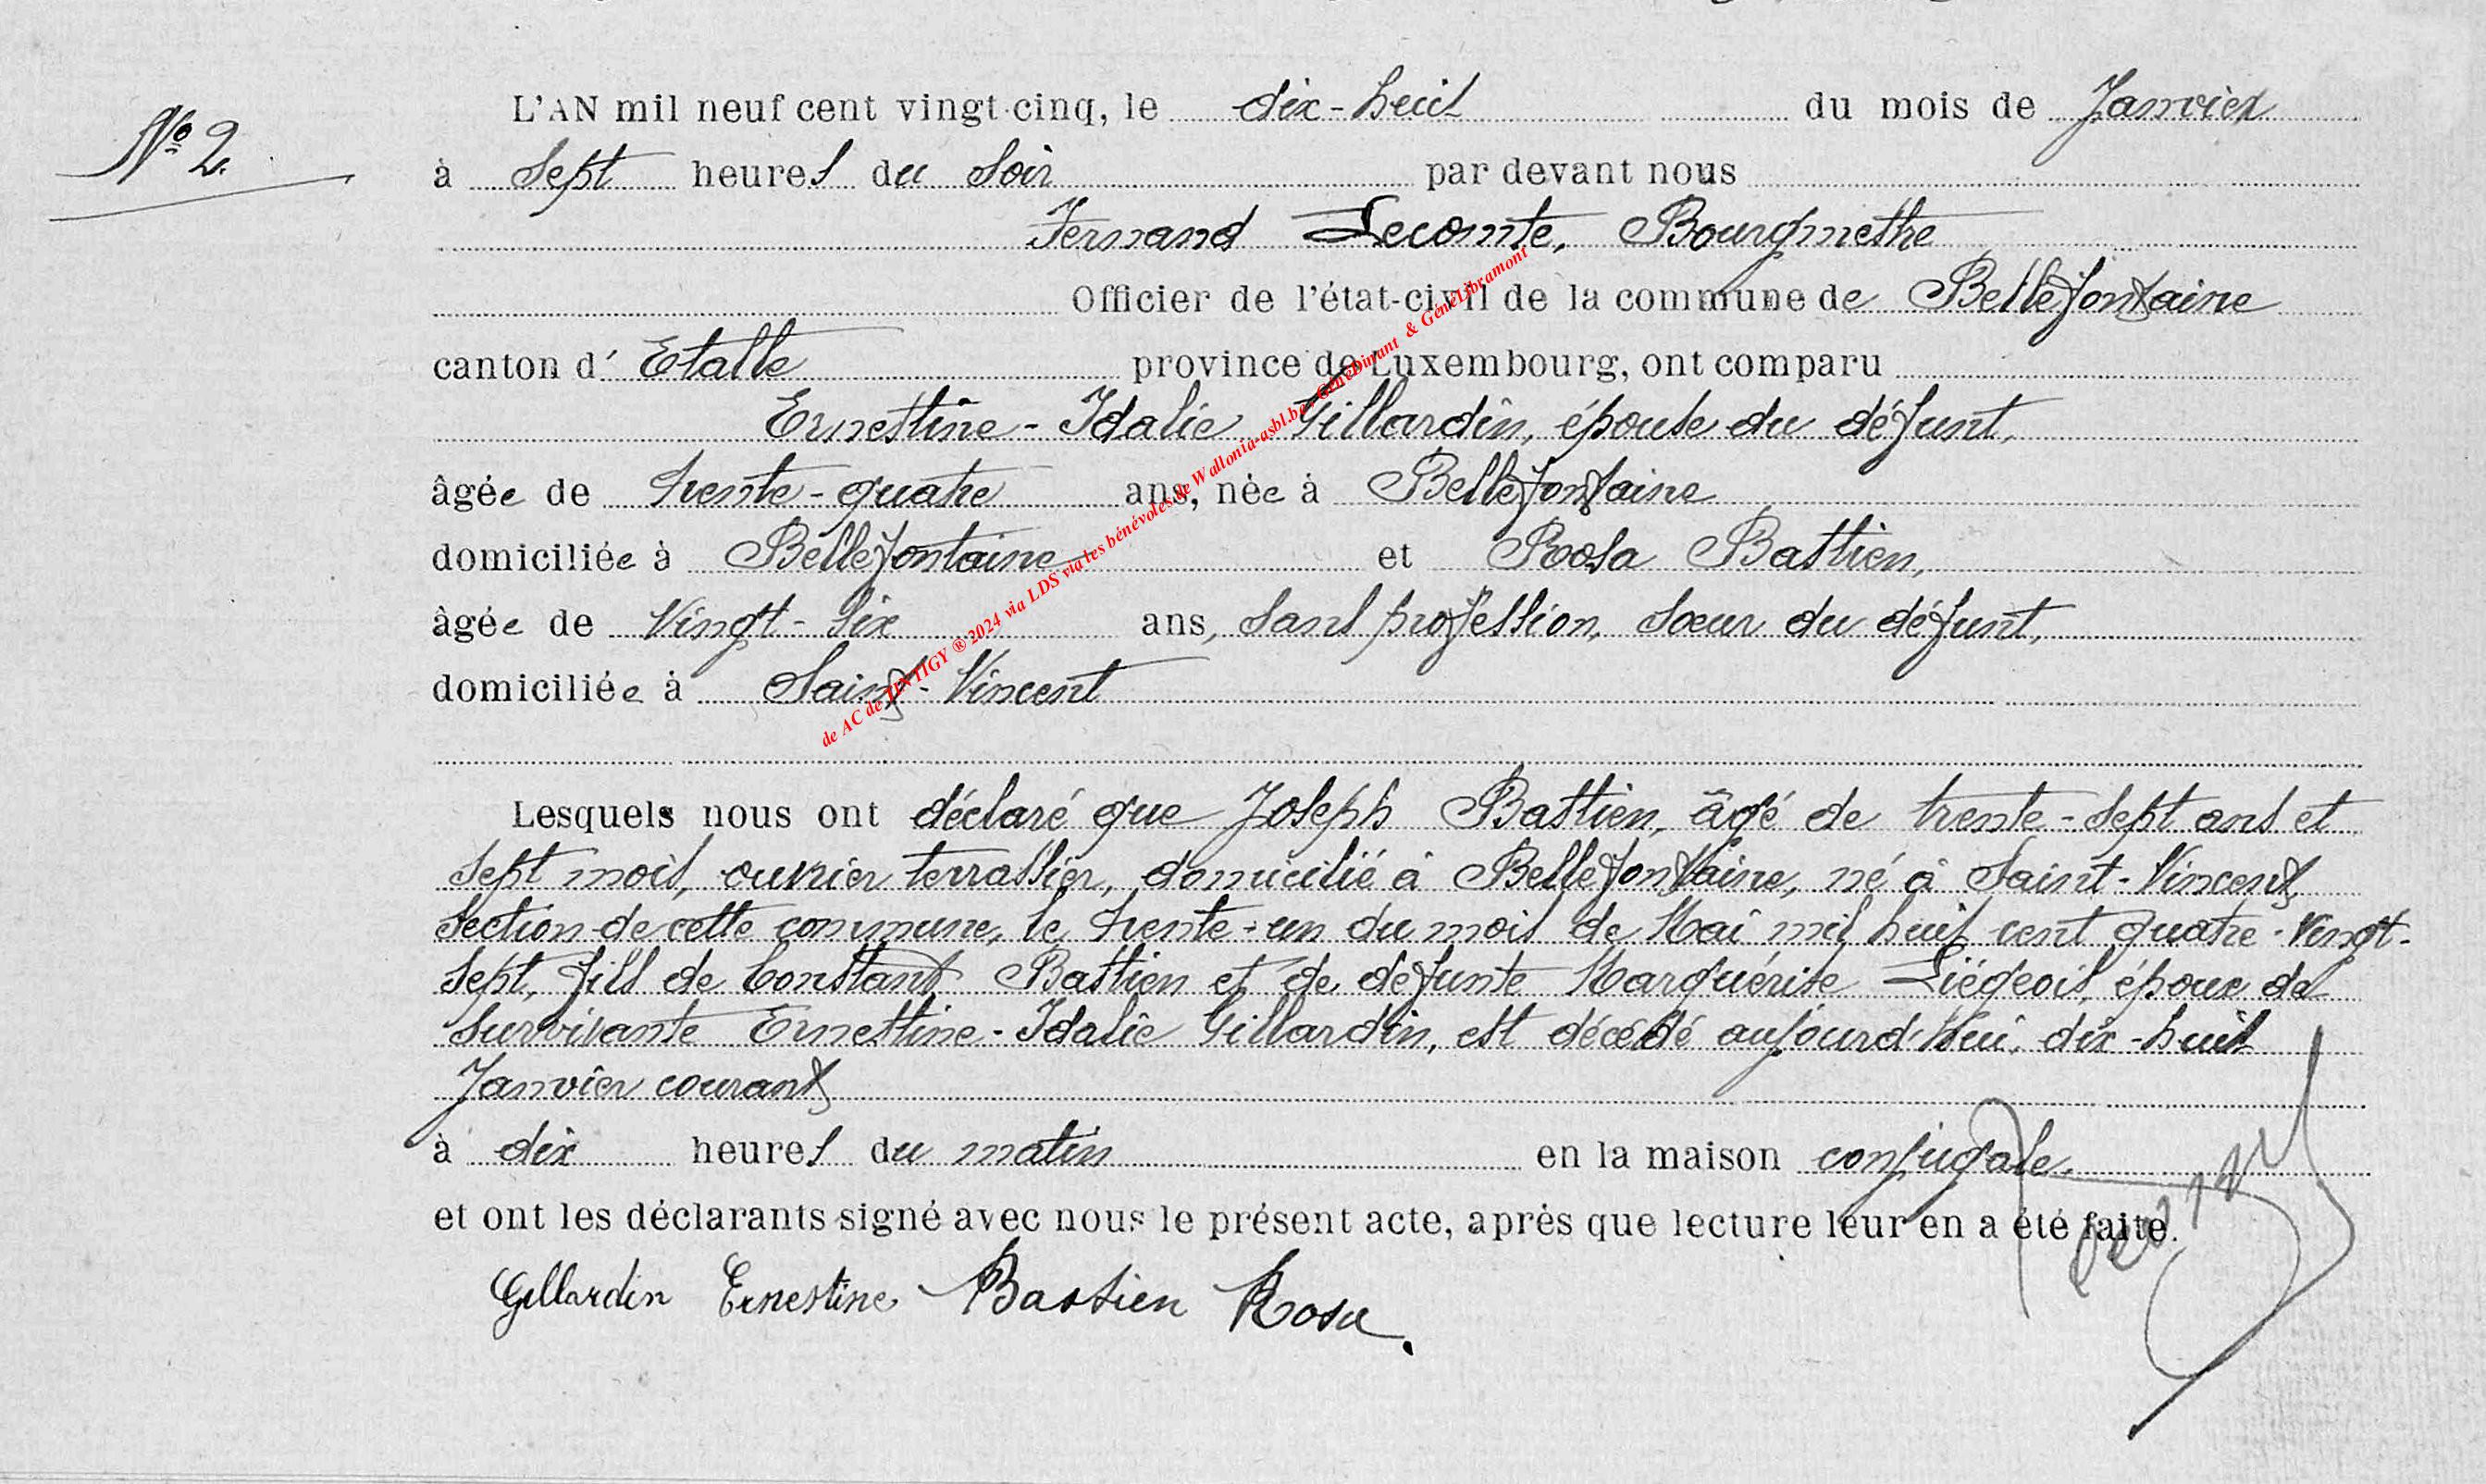 N° 2.
L'AN mil neuf cent vingt-cinq, le dix-huit du mois de Janvier
à sept heures du soir par devant nous
Fernand Lecomte, Bourgmestre
Officier de l'état-civil de la commune de Bellefontaine
canton d' Etalle province de Luxembourg, ont comparu
Ernestine-Idalie Gillardin, épouse du défunt,
âgée de trente-quatre ans, née à Bellefontaine
domiciliée à Bellefontaine et Rosa Bastien,
âgée de vingt-six ans, sans profession, sœur du défunt,
domiciliée à Saint-Vincent
Lesquels nous ont déclaré que Joseph Bastien, âgé de trente-sept ans et
sept mois, ouvrier terrassier, domicilié à Bellefontaine, né à Saint-Vincent
section de cette commune, le trente-un du mois de Mai mil huit cent quatre-vingt-
sept, fils de Constant Bastien et de défunte Marguérite Liégeois, époux de
survivante Ernestine-Idalie Gillardin, est décédé aujourd'hui, dix-huit
Janvier courant
à dix heures du matin en la maison conjugale.
et ont les déclarants signé avec nous le présent acte, après que lecture leur en a été faite.
Gillardin Ernestine Bastien Rosa.
de AC de TINTIGY ® 2024 via LDS via les bénévoles de Wallonia-asbl.be, GénéDinant & GénéLibramont